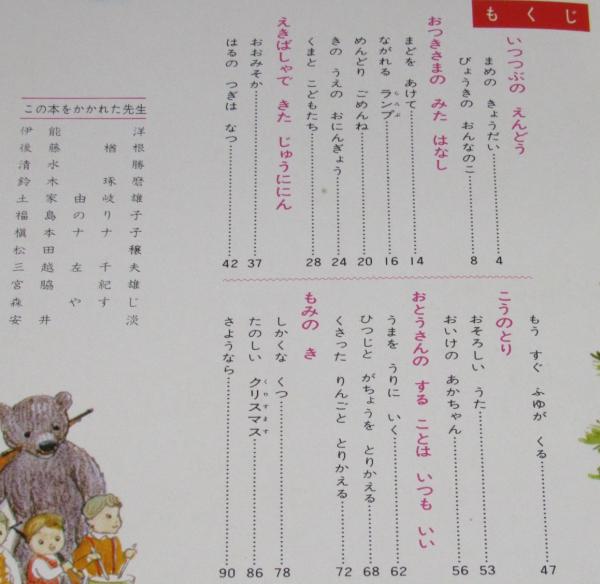 もくじ
いつつぶの えんどう
まめの きょうだい……4
びょうきの おんなのこ……8
おつきさまの みた はなし
まどを あけて……14
ながれる ランプ……16
めんどり ごめんね……20
きの うえの おにんぎょう……24
くまと こどもたち……28
えきばしゃで きた じゅうににん
おおみそか……37
はるの つぎは なつ……42
もう すぐ ふゆが くる……47
こうのとり
おそろしい うた……53
おいけの あかちゃん……56
おとうさんの する ことは いつも いい
うまを うりに いく……62
ひつじと がちょうを とりかえる……68
くさった りんごと とりかえる……72
もみの き
しかくな くつ……78
たのしい クリスマス……86
さようなら……90
この本をかかれた先生
伊能 洋
後藤 楢根
清水 勝
鈴木 琢磨
土家 由岐雄
福島 のり子
槇本 ナナ子
松田 穣
三越 左千夫
宮脇 紀雄
森 やすじ
安井 淡